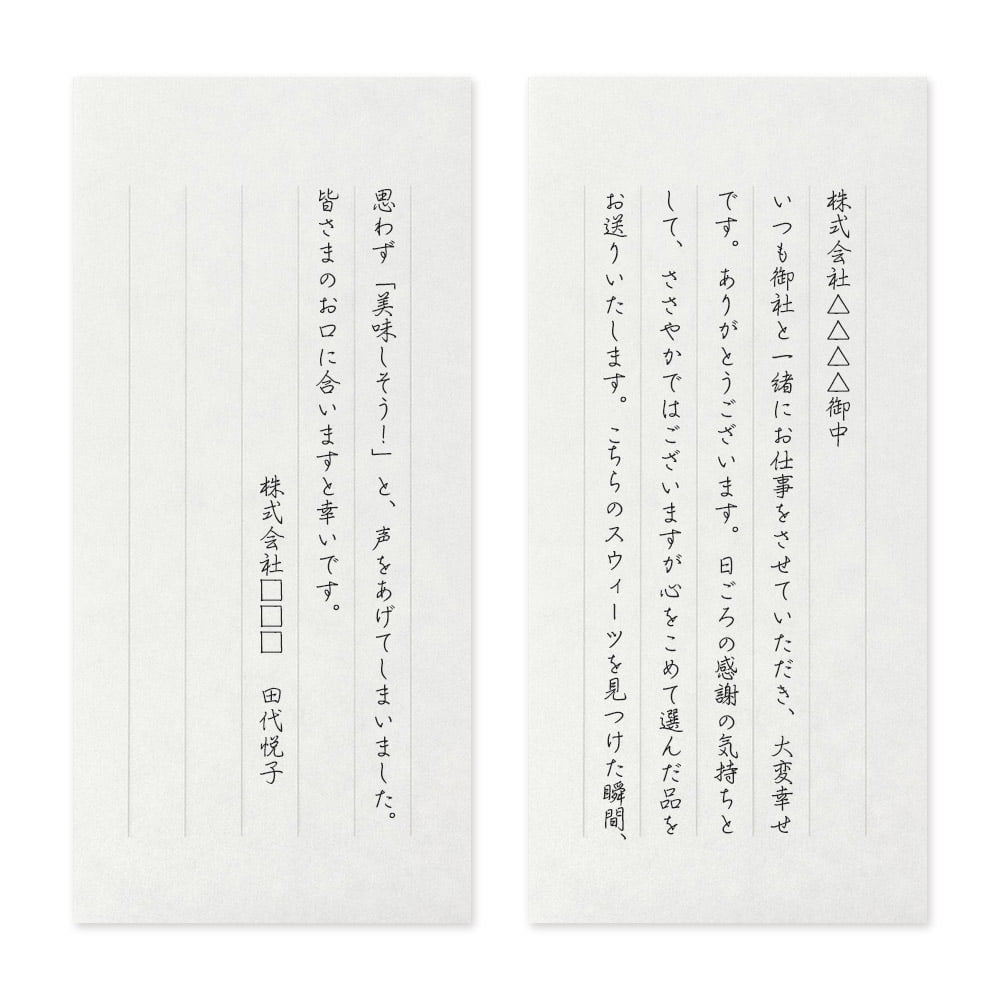 株式会社△△△△御中
いつも御社と一緒にお仕事をさせていただき、大変幸せ
です。ありがとうございます。日ごろの感謝の気持ちと
して、ささやかではございますが心をこめて選んだ品を
お送りいたします。こちらのスウィーツを見つけた瞬間、
思わず「美味しそう！」と、声をあげてしまいました。
皆さまのお口に合いますと幸いです。
株式会社□□□　田代悦子